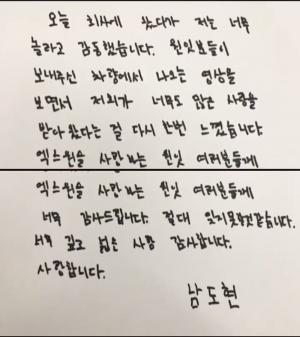 오늘 회사에 왔다가 저는 너무
놀라고 감동했습니다. 원잇분들이
보내주신 차량에서 나오는 영상을
보면서 저희가 너무도 많은 사랑을
받아왔다는 걸 다시 한번 느꼈습니다
엑스원을 사랑하는 원잇 여러분들께
엑스원을 사랑하는 원잇 여러분들께
너무 감사드립니다. 절대 잊지못할것같습니다.
너무 깊고 넓은 사랑 감사합니다.
사랑합니다.
남도현